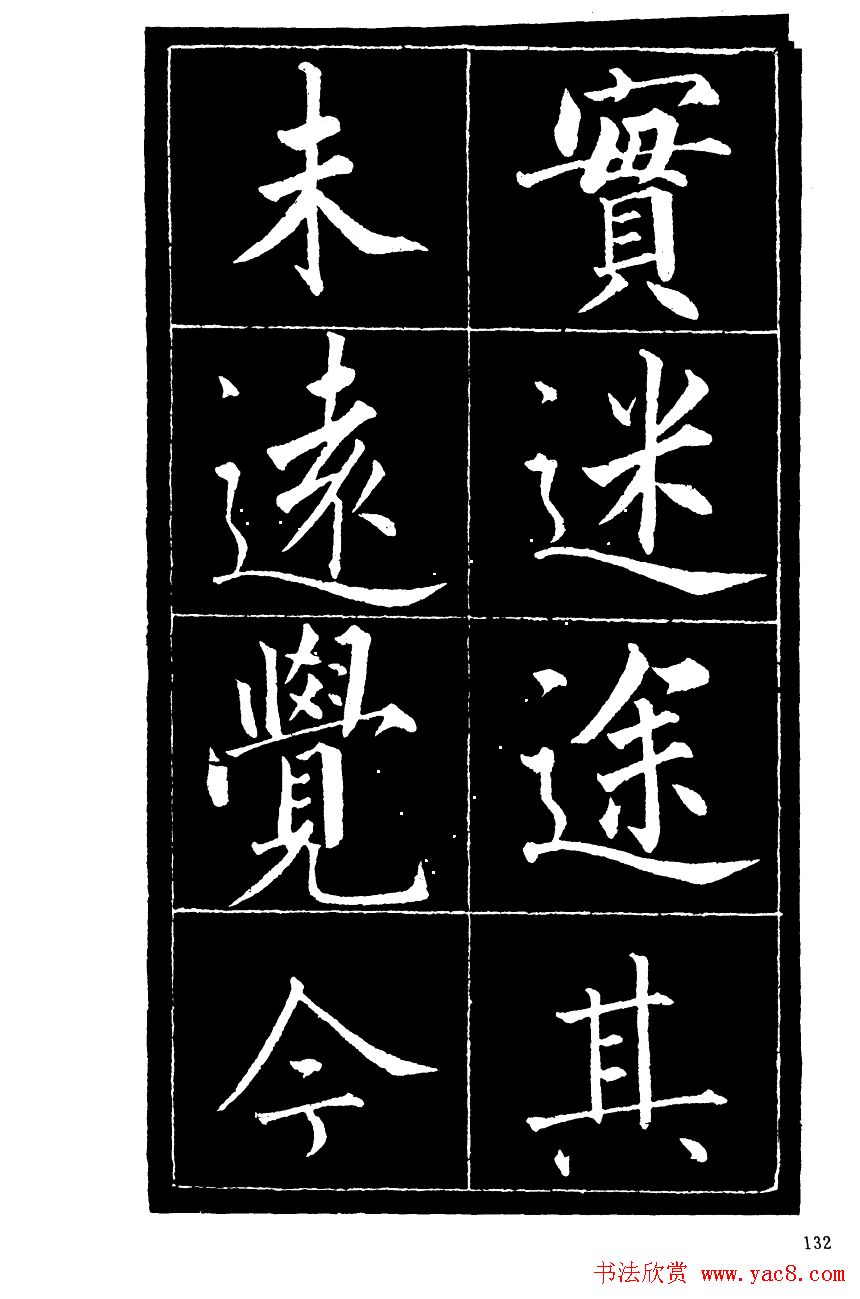 實迷途其
未遠覺今
132
书法欣赏 www.yac8.com